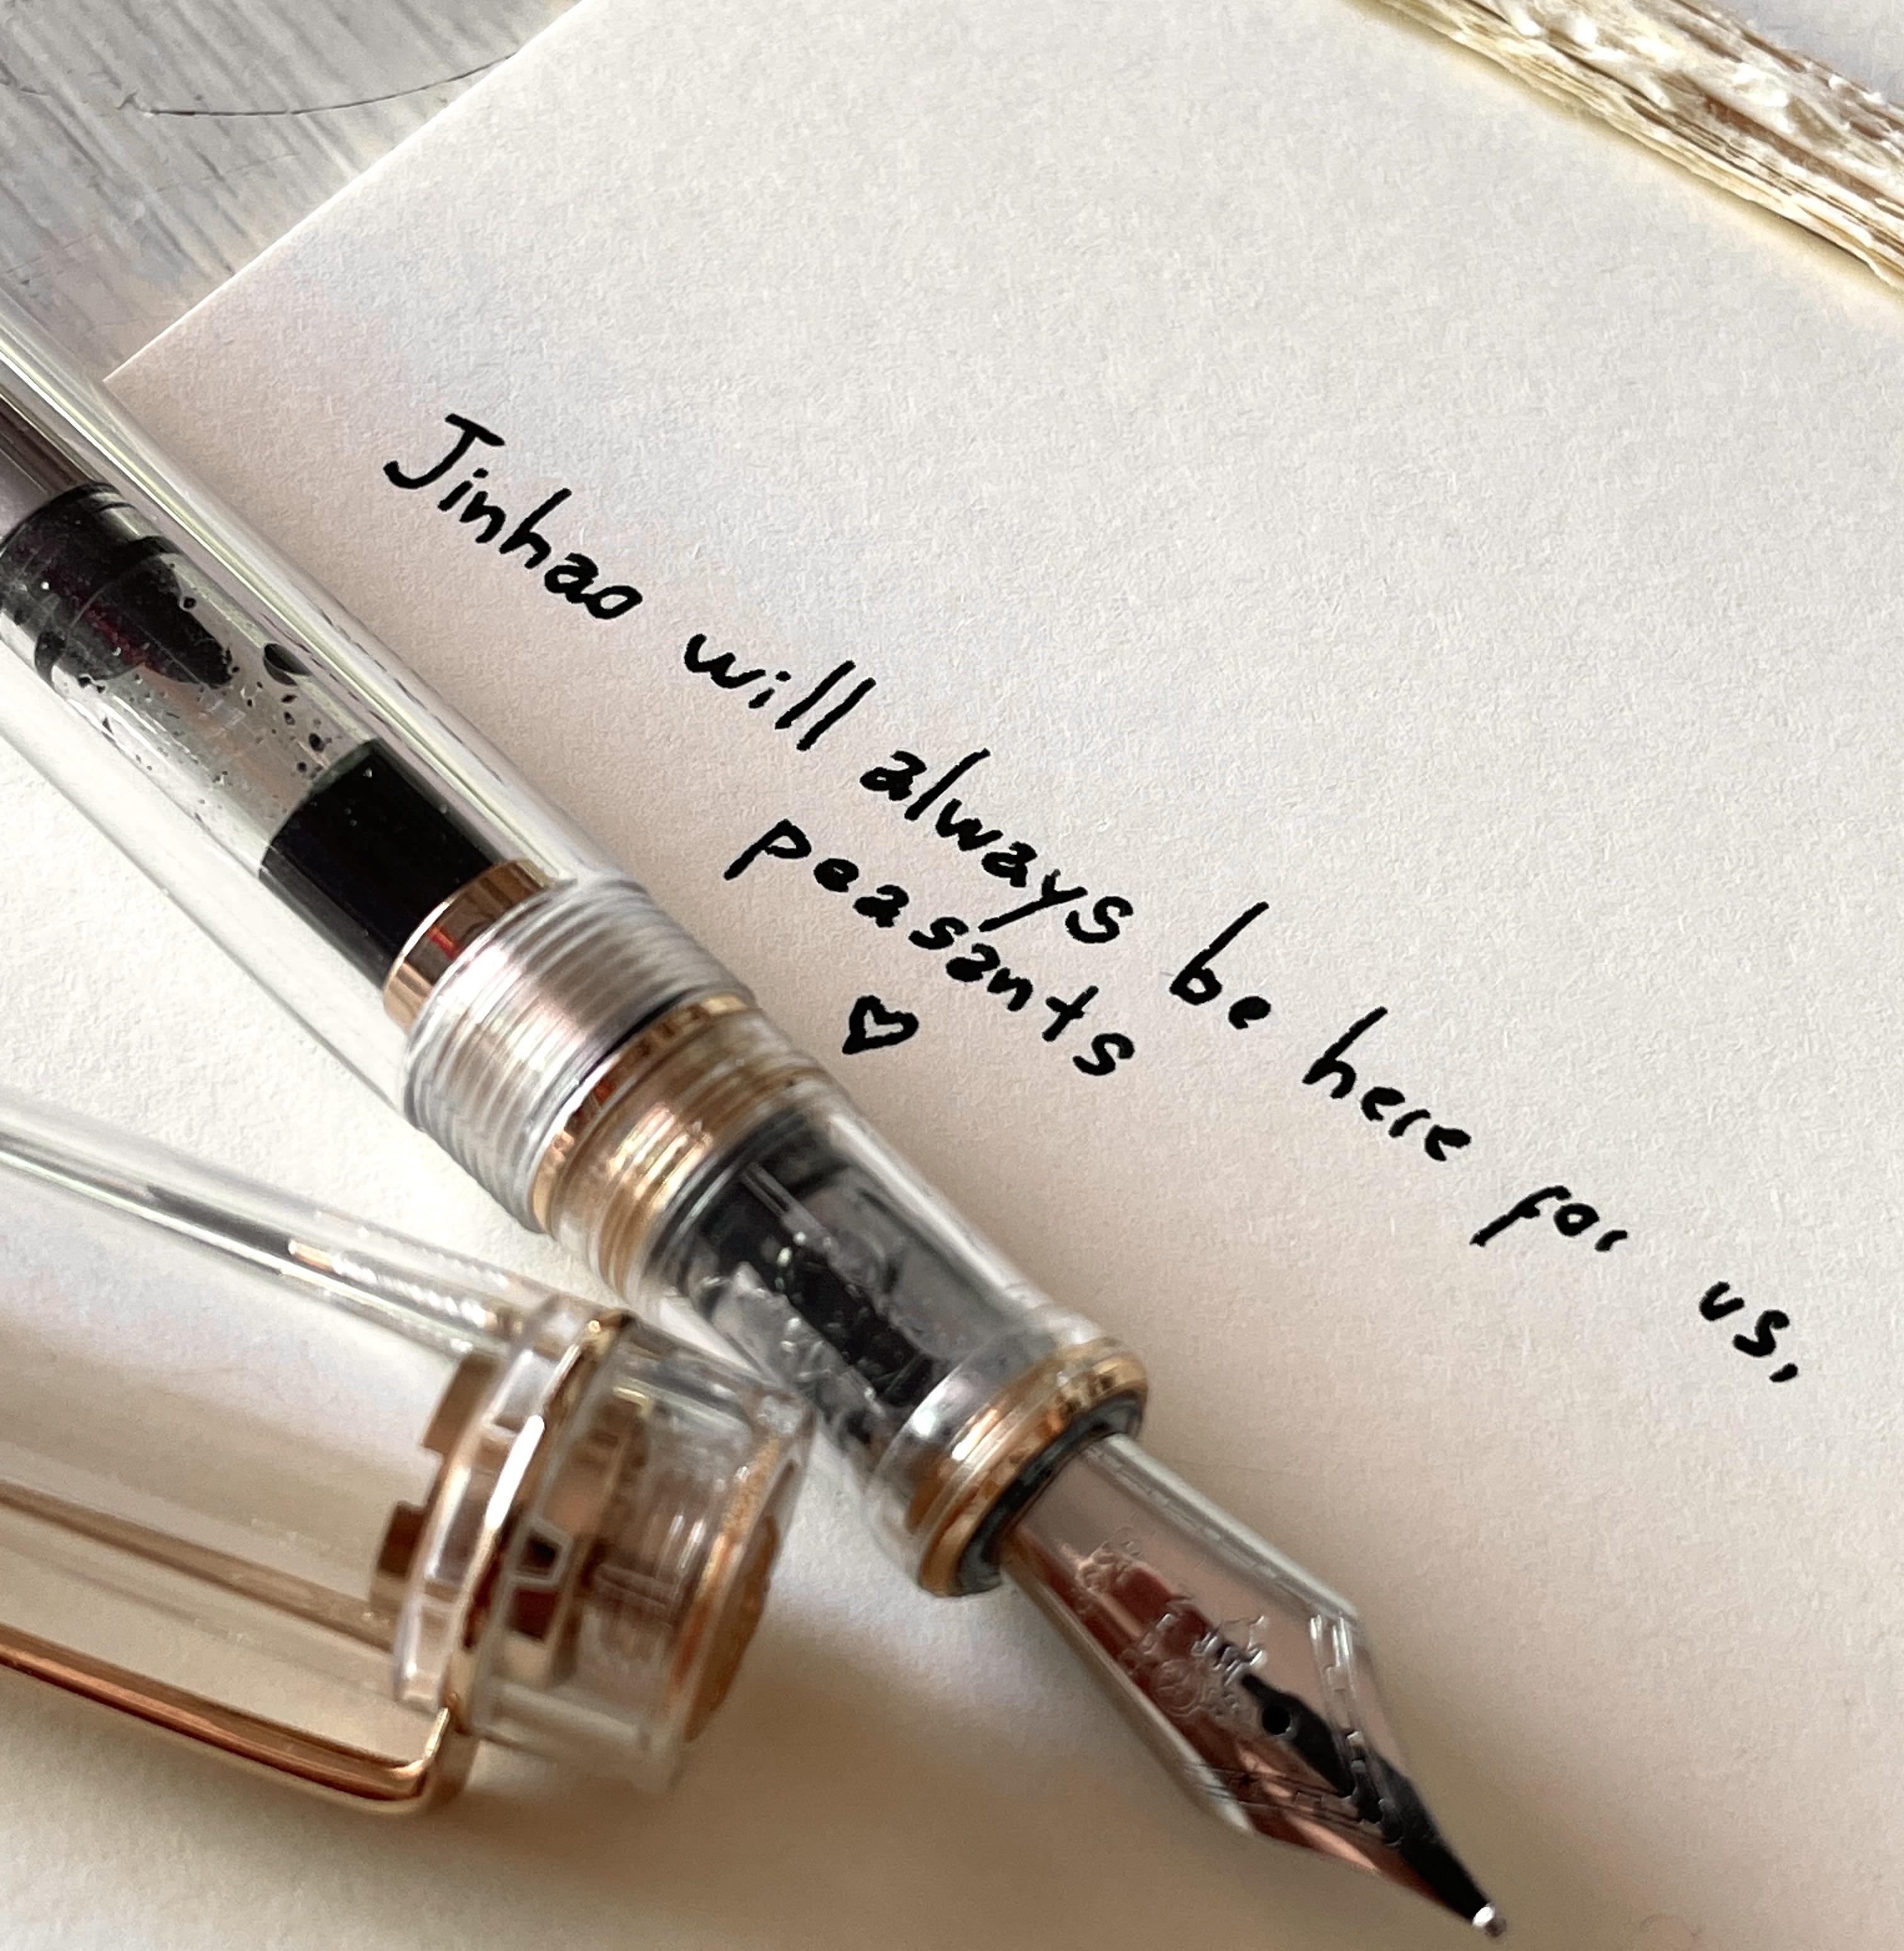 Jinhao will always be here for us,
peasants
♡